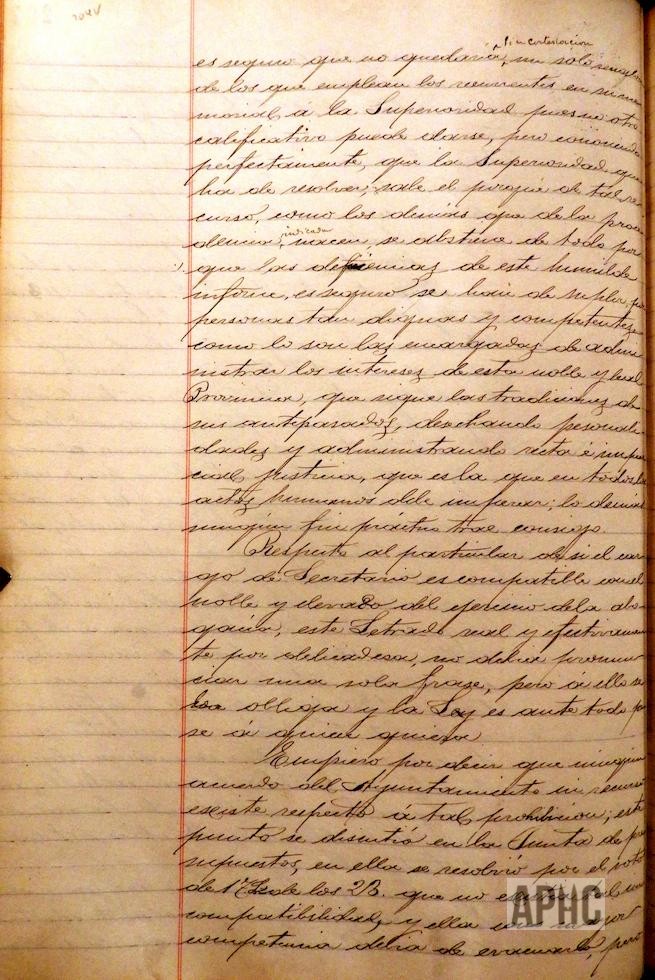 sin contestacion
es seguro que no quedaria, un solo
de los que emplean los recurrentes en su me
morial, á la Superioridad pues no otro
calificativo puede darse, pero conociendo
perfectamente, que la Superioridad que
ha de resolver, sabe el porqué de tal re
curso, como los demás que de la proce
dencia indicada, nacen, se abstiene de todo por
que las deficiencias de este humilde
informe, es seguro se han de suplir, por
personas tan dignas y competentes
como lo son las encargadas de admi
nistrar los intereses de esta noble y leal
Provincia, que sigue las tradiciones de
sus antepasados, desechando personali
dades y administrando recta é impar
cial Justicia, que es la que en todos los
actos humanos debe imperar; lo demás
ningún fin práctico trae consigo.
Respecto al particular de si el car
go de Secretario es compatible con el
noble y elevado del ejercicio de la abo
gacia, este Letrado real y efectivamen
te por delicadesa, no debia pronun
ciar una sola frase, pero á ello se
obliga y la Ley es ante todo pe
se á quien quiera
Empiezo por decir que ningún
acuerdo del Ayuntamiento
existe respecto á tal prohibicion; este
punto se discutió en la Junta de pre
supuestos, en ella se resolvió por el voto
de 17 de los 23. que no
compatibilidad, y ella
competencia debia de evacuarlo, pero
APHC